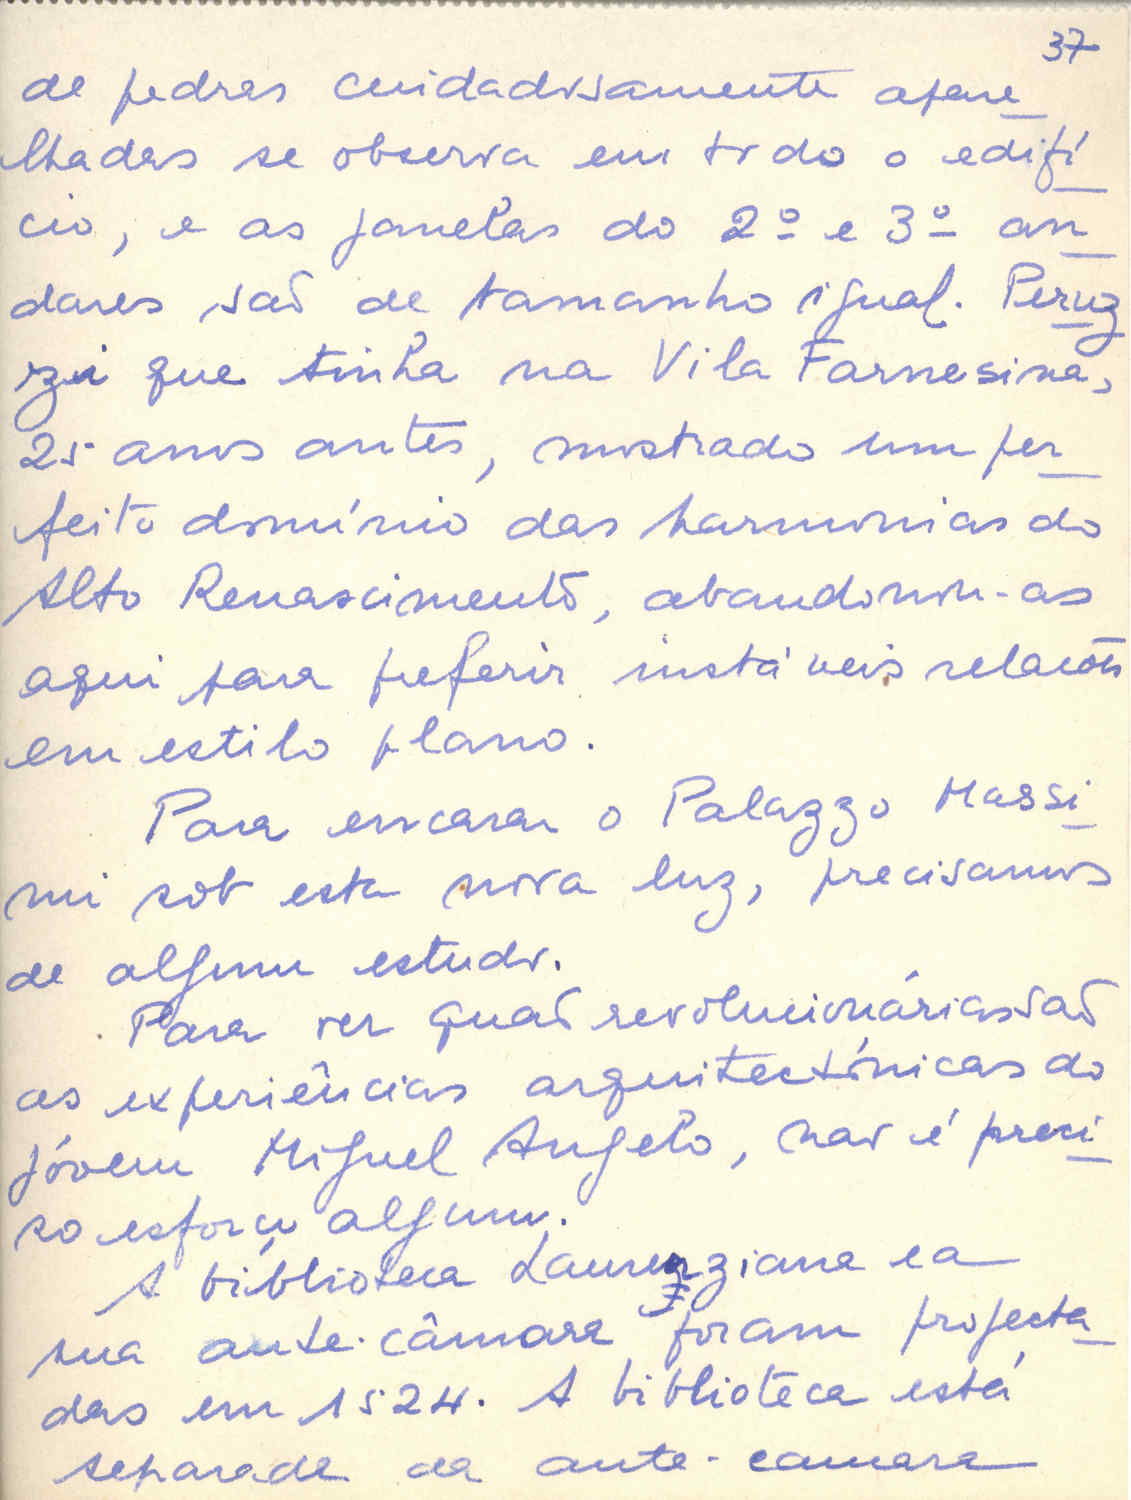 37
de pedras cuidadosamente apare
lhadas se observa em todo o edifí
cio, e as janelas do 2º e 3º an
dares são de tamanho igual. Peruz
zzi que tinha na Vila Farnesina,
25 anos antes, mostrado um per
feito domínio das harmonias do
Alto Renascimento, abandonou-as
aqui para preferir instáveis relacões
em estilo plano.
Para encarar o Palazzo Massi
mi sob esta nova luz, precisamos
de algum estudo.
Para ver quaõ revolucionárias saõ
as experiências arquitectónicas do
jóvem Miguel Angelo, nao é preci
so esforço algum.
A biblioteca Laurenziana e a
sua ante-câmara foram projecta
das em 1524. A biblioteca está
separada da ante-camara